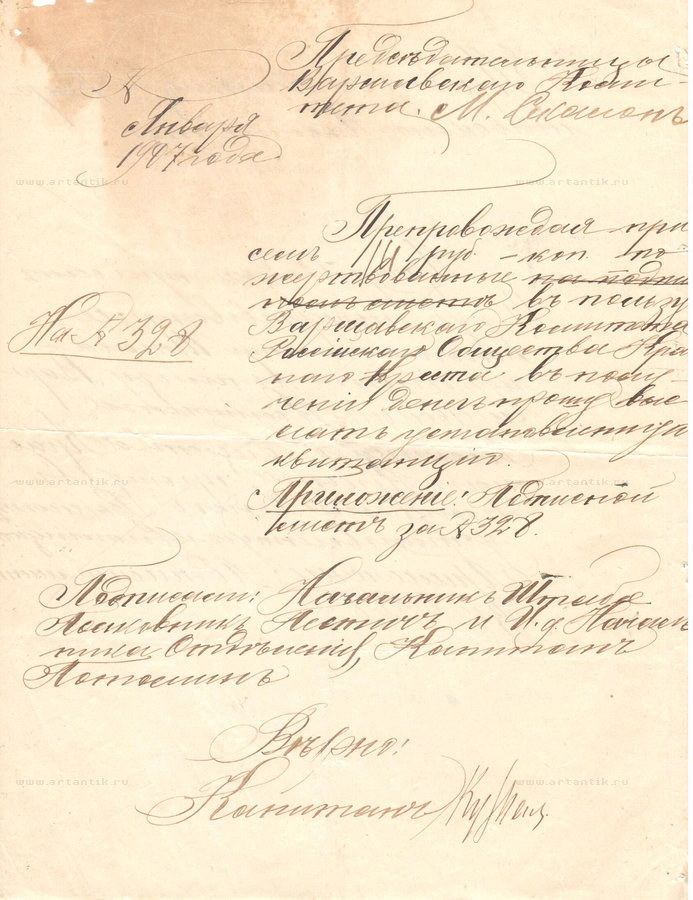 Предсѣдательницы
Варшавскаго Коми-
тета. М. Скалонъ
Января
1907 года.
Препровождая при
семъ руб. - коп. по
жертвованные на подпи
сномъ листѣ въ пользу
На № 328
Варшавскаго Комитета
Россійскаго Общества Кра
снаго Креста въ полу-
ченіи денегъ прошу вы
слать установленную
квитанцію.
Приложеніе: Подписной
листъ за № 328.
Подписали: Начальникъ Штаба
Полковникъ Нестичъ и И. д. Началь
ника Отдѣленія, Капитанъ
Потоминъ
Вѣрно:
Капитанъ
www.artantik.ru